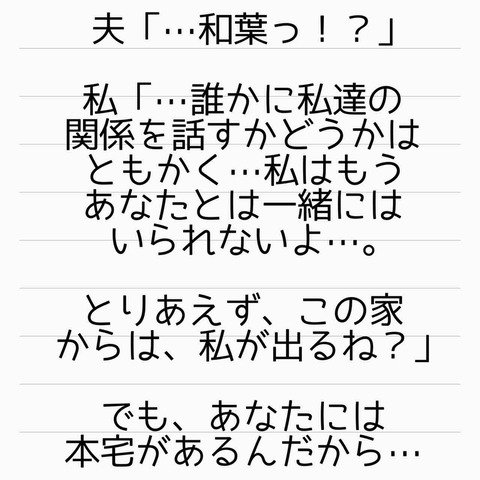 夫「…和葉っ！？」
私「…誰かに私達の
関係を話すかどうかは
ともかく…私はもう
あなたとは一緒には
いられないよ…。
とりあえず、この家
からは、私が出るね？」
でも、あなたには
本宅があるんだから…